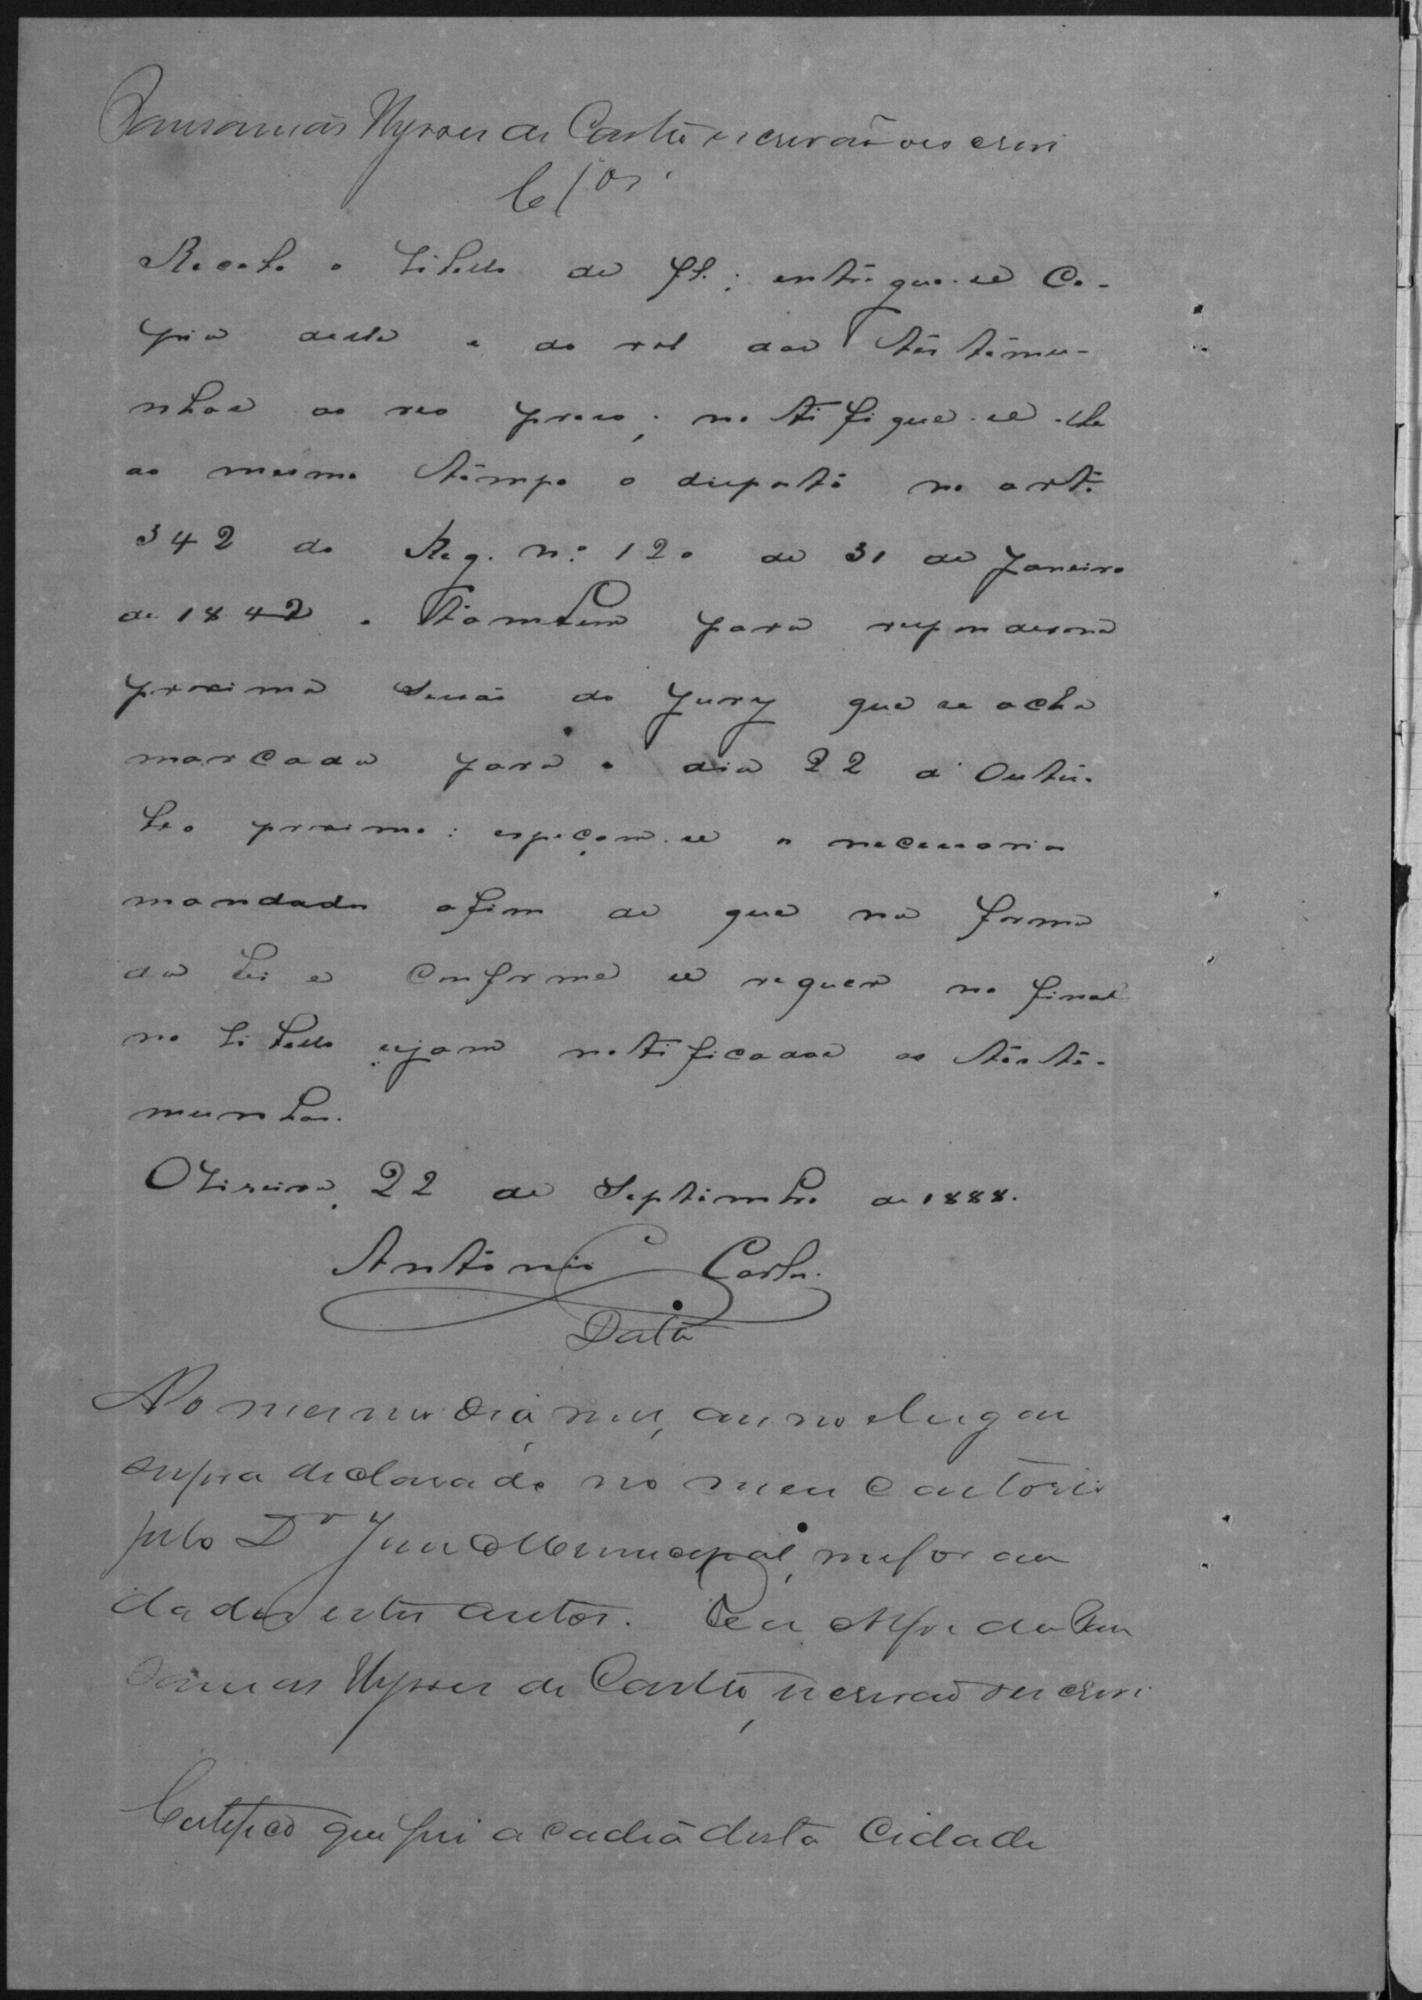 Pausanias Ulysses de Castro escrivão o escrevi
Clos.
Recebo o libello de fl.; entregue-se Co-
pia deste e do rol das testemu-
nhas ao reo preso; notifique-se-lhe
ao mesmo tempo o disposto no art.
342 do Reg. n.º 120 de 31 de Janeiro
de 1842. Tambem para responder na
proxima sessão do Jury que se acha
marcada para o dia 22 d' Outu-
bro proximo: espeçam-se o necessario
mandado afim de que na forma
da lei e conforme se requer no final
no libello sejam notificadas as teste-
munhas.
Oliveira, 22 de Septembro de 1888.
Antonio Carlos.
Data
No mesmo dia, mez, anno e lugar
supra declarado no meu cartorio
pelo Dr Juiz Municipal, me foram
dados estes autos. Eu Alfredo Pau
sanias Ulysses de Castro, escrivão o escrevi
Certifico que fui a cadeia desta Cidade